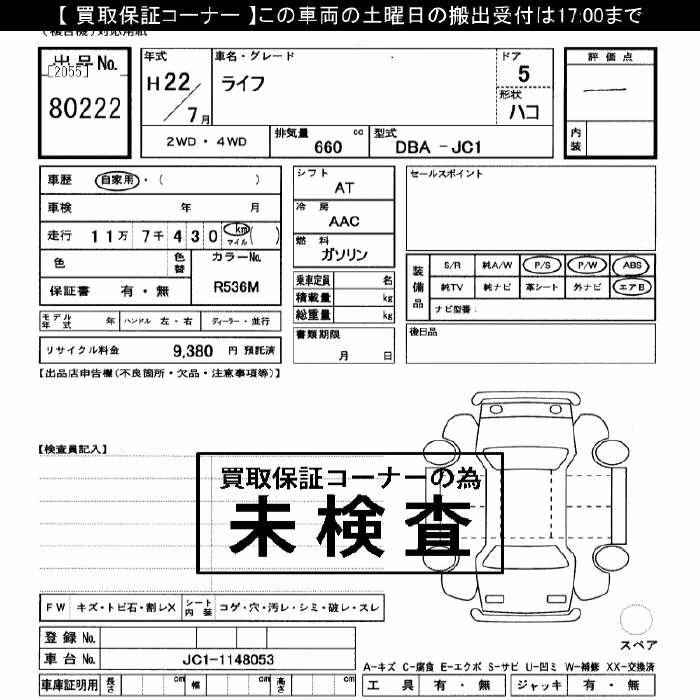 【 買取保証コーナー 】この車両の土曜日の搬出受付は17:00まで
出品No.
[2055]
80222
年式
H 22 / 7 月
車名・グレード
ライフ
ドア
5
形状
ハコ
評価点
内装
2WD ・ 4WD
排気量 cc
660
型式
DBA - JC1
車歴 自家用 ・ ( )
車検 年 月
走行 1 1万 7千 4 3 0 km マイル ( )
色 色替 カラーNo.
R536M
保証書 有 ・ 無
シフト
AT
冷房
AAC
燃料
ガソリン
乗車定員 名
積載量 kg
総重量 kg
セールスポイント
装備品
S/R 純A/W P/S P/W ABS
純TV 純ナビ 革シート 外ナビ エアB
ナビ型番:
モデル年式 年 ハンドル 左・右 ディーラー・並行
書類期限
月 日
後日品
リサイクル料金 9,380 円 預託済
【出品店申告欄(不良箇所・欠品・注意事項等)】
【検査員記入】
買取保証コーナーの為
未検査
FW キズ・トビ石・割レX シート内装 コゲ・穴・汚レ・シミ・破レ・スレ
登録 No.
車台 No. JC1-1148053
スペア
A-キズ C-腐食 E-エクボ S-サビ U-凹ミ W-補修 XX-交換済
車庫証明用 長さ cm 幅 cm 高さ cm
工具 有 ・ 無 ジャッキ 有 ・ 無